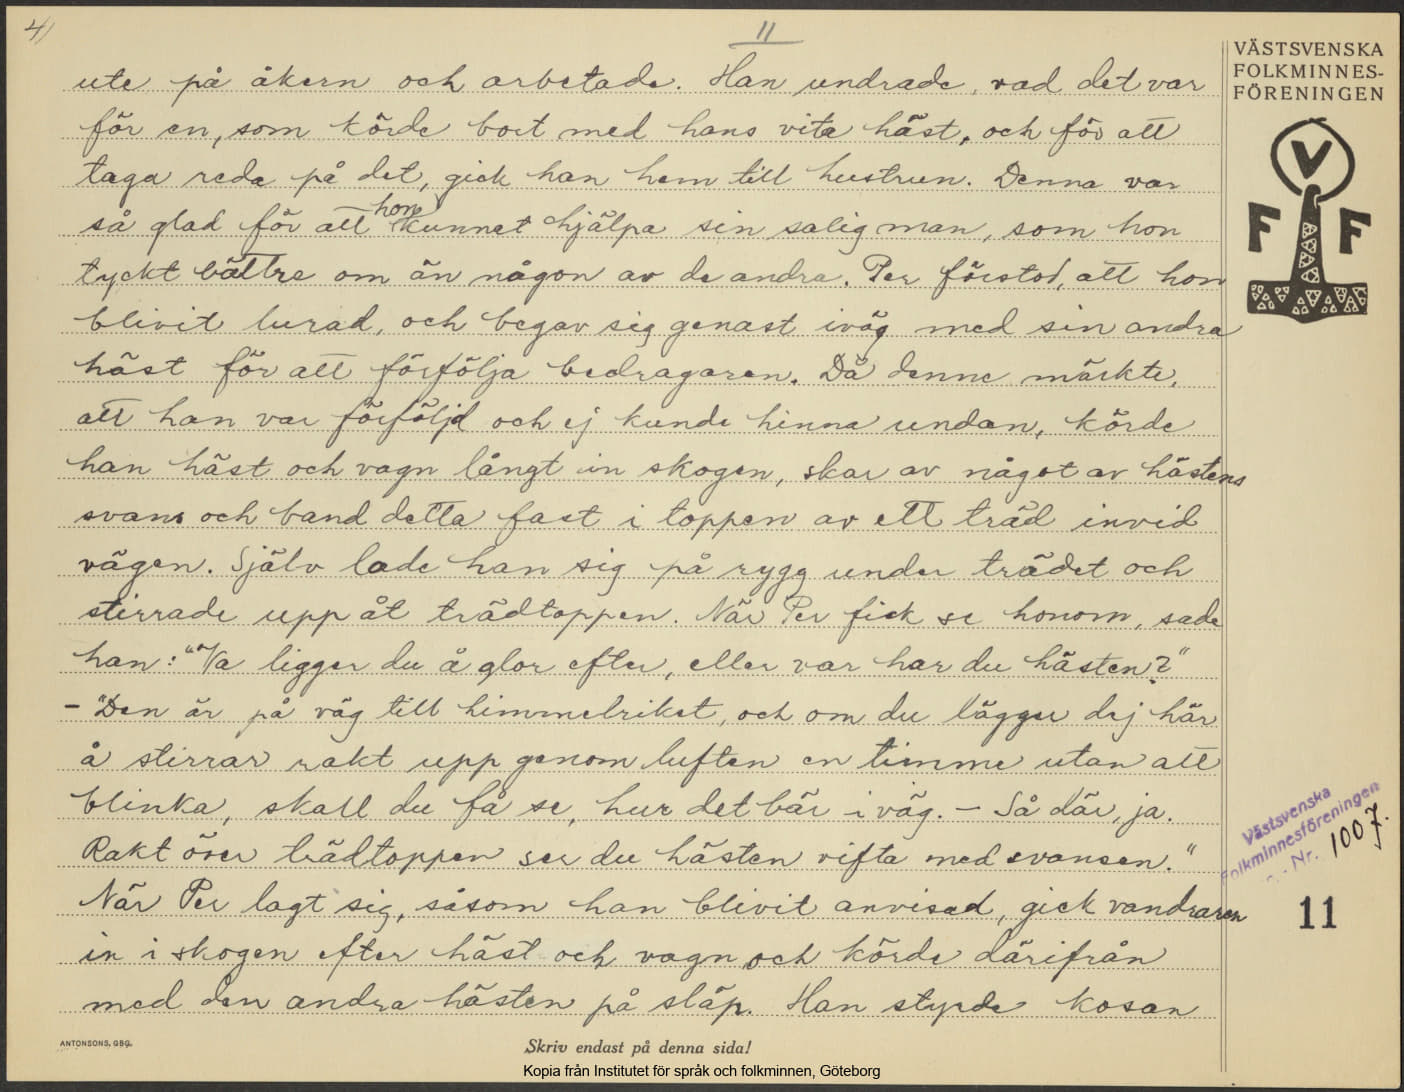 4)
11
ute på åkern och arbetade. Han undrade, vad det var
för en, som körde bort med hans vita häst, och för att
taga reda på det, gick han hem till hustrun. Denna var
så glad för att hon kunnat hjälpa sin salig man, som hon
tyckt bättre om än någon av de andra. Per förstod, att hon
blivit lurad, och begav sig genast iväg med sin andra
häst för att förfölja bedragaren. Då denne märkte,
att han var förföljd och ej kunde hinna undan, körde
han häst och vagn långt in skogen, skar av något av hästens
svans och band detta fast i toppen av ett träd invid
vägen. Själv lade han sig på rygg under trädet och
stirrade upp åt trädtoppen. När Per fick se honom, sade
han: "Va ligger du å glor efter, eller var har du hästen?"
- "Den är på väg till himmelriket, och om du lägger dej här
å stirrar rakt upp genom luften en timme utan att
blinka, skall du få se, hur det bär i väg. - Så där, ja.
Rakt över trädtoppen ser du hästen vifta med svansen."
När Per lagt sig, såsom han blivit anvisad, gick vandraren
in i skogen efter häst och vagn och körde därifrån
med den andra hästen på släp. Han styrde kosan
VÄSTSVENSKA
FOLKMINNES-
FÖRENINGEN
V
F F
Västsvenska
Folkminnesföreningen
Nr. 1007.
11
ANTONSONS, GBG.
Skriv endast på denna sida!
Kopia från Institutet för språk och folkminnen, Göteborg